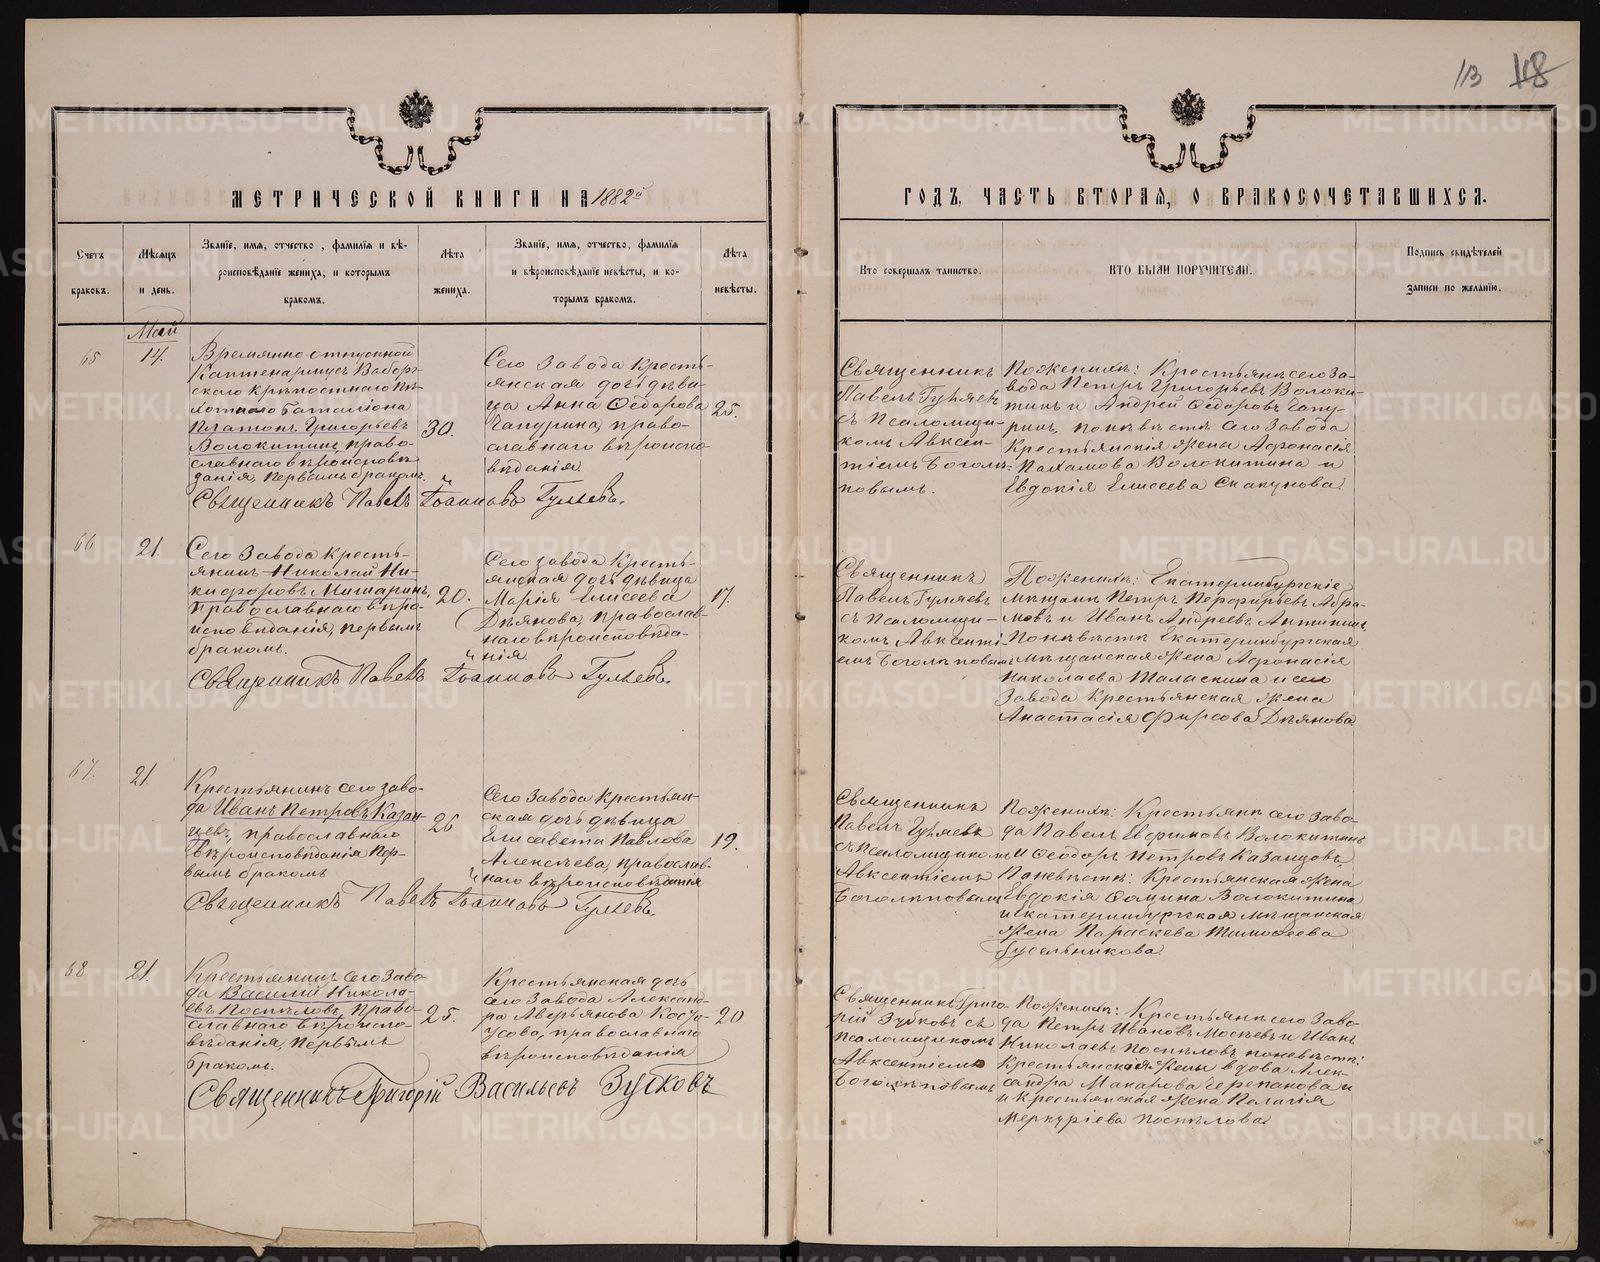 113 118
МЕТРИЧЕСКОЙ КНИГИ НА 1882й
ГОДЪ, ЧАСТЬ ВТОРАЯ, О БРАКОСОЧЕТАВШИХСЯ.
Счетъ
браковъ.
Мѣсяцъ
и день.
Званіе, имя, отчество, фамилія и вѣ-
роисповѣданіе жениха, и которымъ
бракомъ.
Лѣта
жениха.
Званіе, имя, отчество, фамилія
и вѣроисповѣданіе невѣсты, и ко-
торымъ бракомъ.
Лѣта
невѣсты.
Кто совершалъ таинство.
КТО БЫЛИ ПОРУЧИТЕЛИ.
Подпись свидѣтелей
записи по желанію.
Май
65
14.
Времянно-отпускной
Каптенармусъ Выборг-
скаго Крѣпостнаго Пѣ-
хотнаго Баталіона
Платонъ Григорьевъ
Волокитинъ, право-
славнаго вѣроисповѣ-
данія, первымъ бракомъ.
30.
Сего Завода Кресть-
янская дочь дѣви-
ца Анна Ѳедорова
Чапурина, право-
славнаго вѣроиспо-
вѣданія
25.
Священникъ Павелъ Іоанновъ Гуляевъ.
Священникъ
Павелъ Гуляевъ
съ Псаломщи-
комъ Авксен-
тіемъ Боголѣ-
повымъ.
По женихѣ: Крестьянѣ сего За-
вода Петръ Григорьевъ Волоки-
тинъ и Андрей Ѳедоровъ Чапу-
ринъ, по невѣстѣ сего Завода
Крестьянскія жены Афонасія
Пахомова Волокитина и
Евдокія Елисеева Скакунова.
66
21.
Сего Завода Кресть-
янинъ Николай Ни-
кифоровъ Мишаринъ,
православнаго вѣро-
исповѣданія, первымъ
бракомъ.
20.
Сего завода Кресть-
янская дочь дѣвица
Марія Елисеева
Дѣянова, православ-
наго вѣроисповѣда-
нія
17.
Священникъ Павелъ Іоанновъ Гуляевъ.
Священникъ
Павелъ Гуляевъ
съ Псаломщи-
комъ Авксенті-
емъ Боголѣповымъ
По женихѣ: Екатеринбургскіе
мѣщане Петръ Порфирьевъ Абра-
мовъ и Иванъ Андреевъ Антипинъ
По невѣстѣ Екатеринбургская
мѣщанская жена Афонасія
Николаева Таласкина и сего
Завода Крестьянская жена
Анастасія Фирсова Дѣянова
67.
21.
Крестьянинъ сего заво-
да Иванъ Петровъ Казан-
цевъ, православнаго
вѣроисповѣданія, пер-
вымъ бракомъ
26
Сего Завода Крестьян-
ская дочь дѣвица
Елисавета Павлова
Алексѣева, православ-
наго вѣроисповѣданія
19.
Священникъ Павелъ Іоанновъ Гуляевъ.
Священникъ
Павелъ Гуляевъ
съ псаломщикомъ
Авксентіемъ
Боголѣповымъ
По женихѣ: Крестьянѣ сего Заво-
да Павелъ Ефимовъ Волокитинъ
и Ѳеодоръ Петровъ Казанцовъ
По невѣстѣ: Крестьянская жена
Евдокія Ѳомина Волокитина
и Екатеринбургская мѣщанская
жена Параскева Тимоѳеева
Гусельникова
68
21.
Крестьянинъ сего Заво-
да Василій Никола-
евъ Поспѣловъ, право-
славнаго вѣроиспо-
вѣданія, первымъ
бракомъ.
25.
Крестьянская дочь
сего Завода Александ-
ра Аверьянова
православнаго
вѣроисповѣданія
20
Священникъ Григорій Васильевъ Зубковъ
Священникъ Григо-
рій Зубковъ съ
псаломщикомъ
Авксентіемъ
Боголѣповымъ
По женихѣ: Крестьянѣ сего Заво-
да Петръ Ивановъ Мосѣевъ и Иванъ
Николаевъ Поспѣловъ, по невѣстѣ:
Крестьянскія жены вдова Алек-
сандра Макарова Черепанова и
и Крестьянская жена Пелагія
Меркуріева Поспѣлова